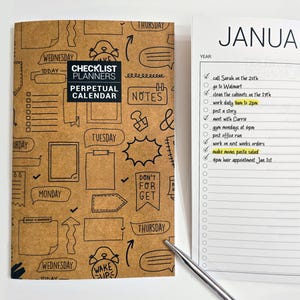 THURSDAY
WEDNESDAY
TODAY
CHECKLIST
PLANNERS
PERPETUAL
CALENDAR
NOTES
TUESDAY
DON'T
FOR
GET
MONDAY
THURSDAY
WEDNESDAY
WAKE
UP!
JANUA
YEAR
call Sarah on the 20th
go to Walmart
clean the cabinets on the 29th
work daily 9am to 2pm
post a story
meet with Carrie
gym mondays at 6pm
post office run
work on next weeks orders
make moms pasta salad
4pm hair appointment Jan 1st